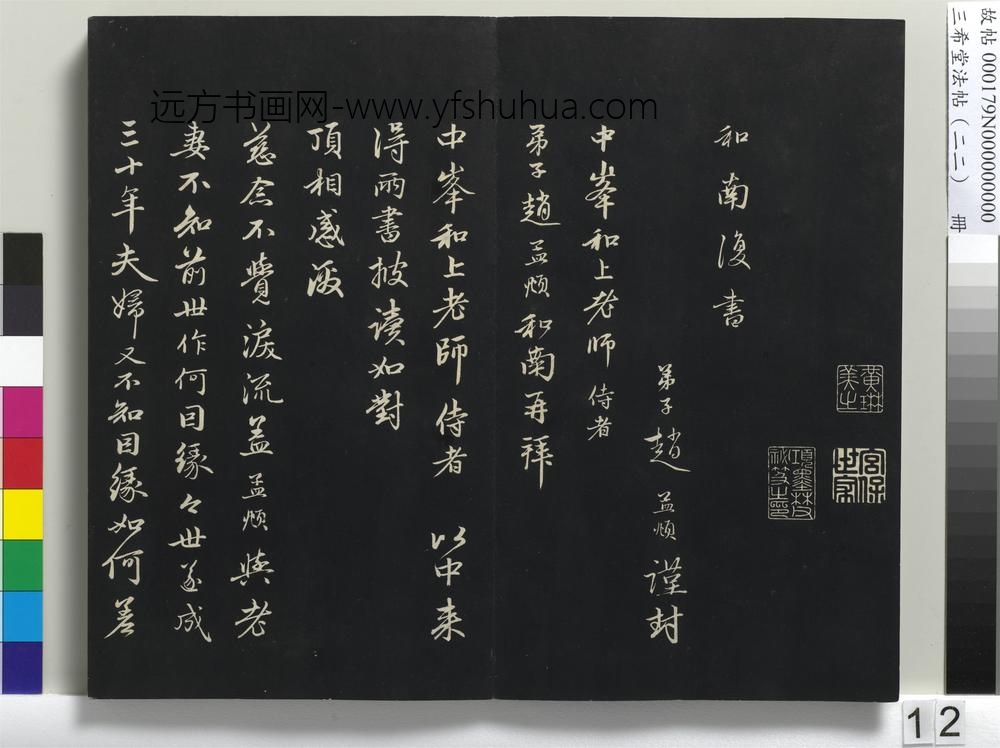 故帖 000179N000000000
三希堂法帖（二二） 册
远方书画网-www.yfshuhua.com
黄琳美之
宫保世家
項墨林父祕笈之印
和南復書
弟子趙孟頫謹封
中峯和上老师侍者
弟子趙孟頫和南再拜
中峯和上老師侍者 以中来
得兩書披讀如對
頂相感激
慈念不覺淚流盖孟頫與老
妻不知前世作何因緣々世遂成
三十年夫婦又不知因緣如何差
12